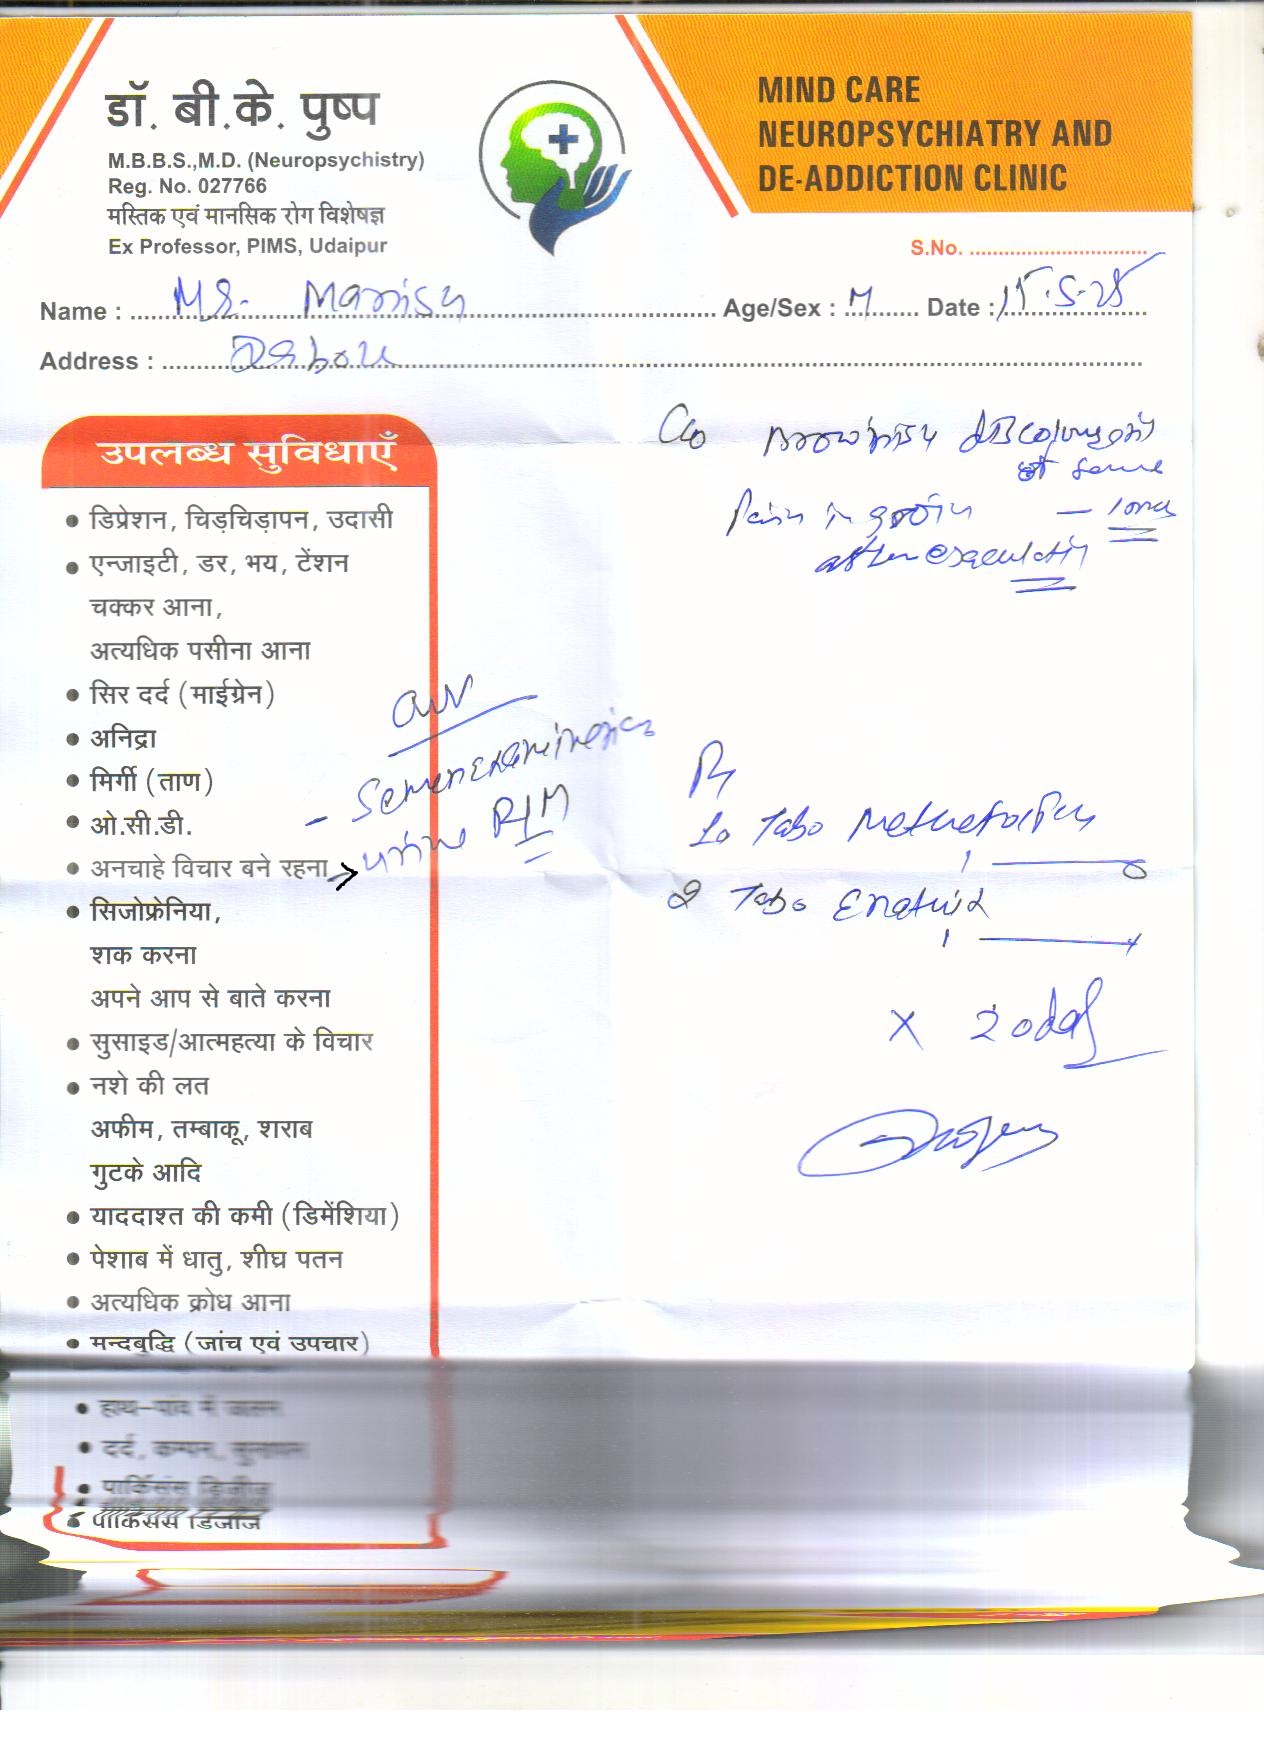 डॉ. बी.के. पुष्प
M.B.B.S.,M.D. (Neuropsychistry)
Reg. No. 027766
मस्तिक एवं मानसिक रोग विशेषज्ञ
Ex Professor, PIMS, Udaipur
MIND CARE
NEUROPSYCHIATRY AND
DE-ADDICTION CLINIC
S.No. ..............................
Name : Mr. Manish Age/Sex : M Date : 15-5-25
Address :
C/o Brownish discolouration
of semen
Pain in groin
after ejaculation
Adv
- Semen Examination
Urine R/M
Rx
Tabs
2 Tabs
x 20 days
उपलब्ध सुविधाएँ
• डिप्रेशन, चिड़चिड़ापन, उदासी
• एन्जाइटी, डर, भय, टेंशन
चक्कर आना,
अत्यधिक पसीना आना
• सिर दर्द (माईग्रेन)
• अनिद्रा
• मिर्गी (ताण)
• ओ.सी.डी.
• अनचाहे विचार बने रहना
• सिजोफ्रेनिया,
शक करना
अपने आप से बाते करना
• सुसाइड/आत्महत्या के विचार
• नशे की लत
अफीम, तम्बाकू, शराब
गुटके आदि
• याददाश्त की कमी (डिमेंशिया)
• पेशाब में धातु, शीघ्र पतन
• अत्यधिक क्रोध आना
• मन्दबुद्धि (जांच एवं उपचार)
• हाथ-पांव में जलन
• दर्द, कम्पन, सुन्नापन
• पार्किसंस डिजीज
• पार्किसंस डिजीज